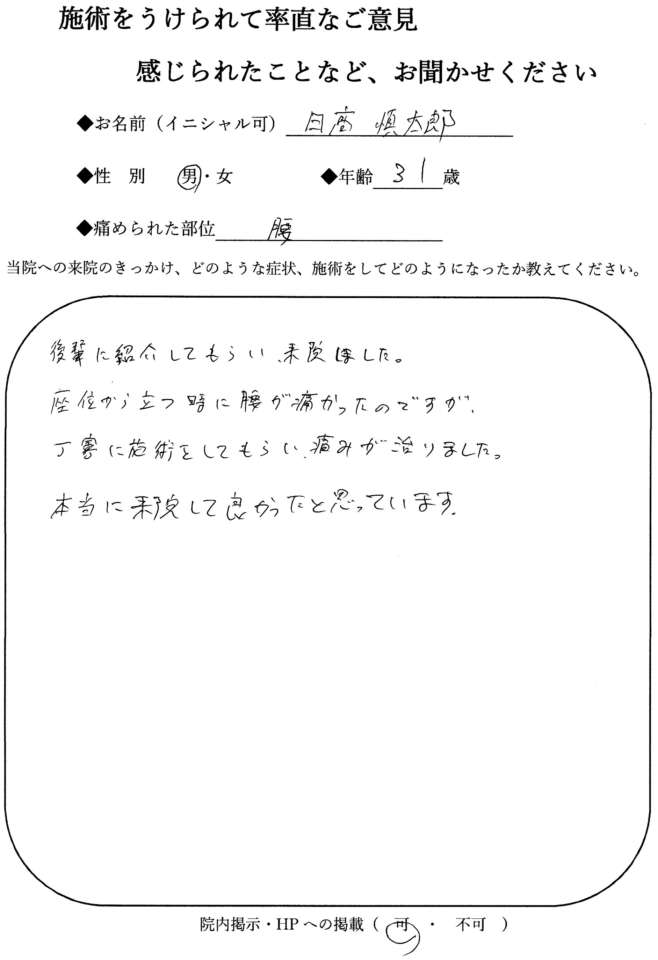 施術をうけられて率直なご意見
感じられたことなど、お聞かせください
◆お名前（イニシャル可） 日座 慎太郎
◆性 別 男・女 ◆年齢 31 歳
◆痛められた部位 腰
当院への来院のきっかけ、どのような症状、施術をしてどのようになったか教えてください。
後輩に紹介してもらい、来院しました。
座位から立つ時に腰が痛かったのですが、
丁寧に施術をしてもらい、痛みが治りました。
本当に来院して良かったと思っています。
院内掲示・HPへの掲載（ 可 ・ 不可 ）